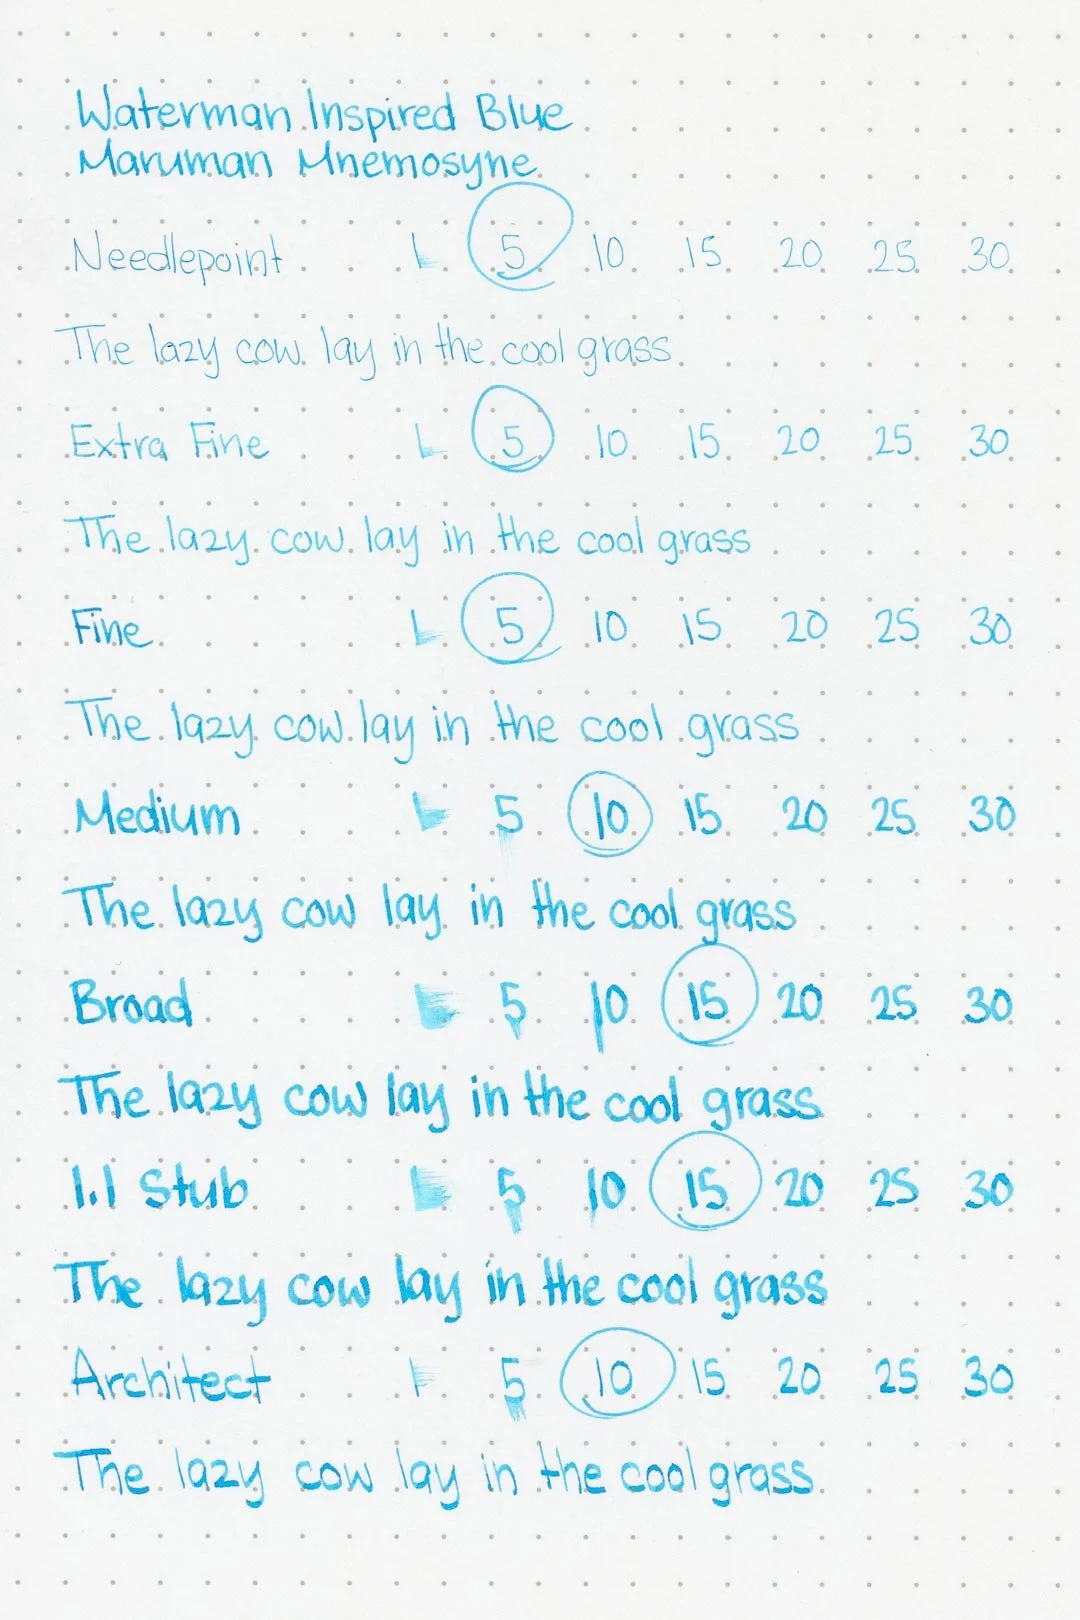 Waterman Inspired Blue
Maruman Mnemosyne
Needlepoint L 5 10 15 20 25 30
The lazy cow lay in the cool grass
Extra Fine L 5 10 15 20 25 30
The lazy cow lay in the cool grass
Fine L 5 10 15 20 25 30
The lazy cow lay in the cool grass
Medium L 5 10 15 20 25 30
The lazy cow lay in the cool grass
Broad L 5 10 15 20 25 30
The lazy cow lay in the cool grass
1.1 Stub L 5 10 15 20 25 30
The lazy cow lay in the cool grass
Architect 1 5 10 15 20 25 30
The lazy cow lay in the cool grass